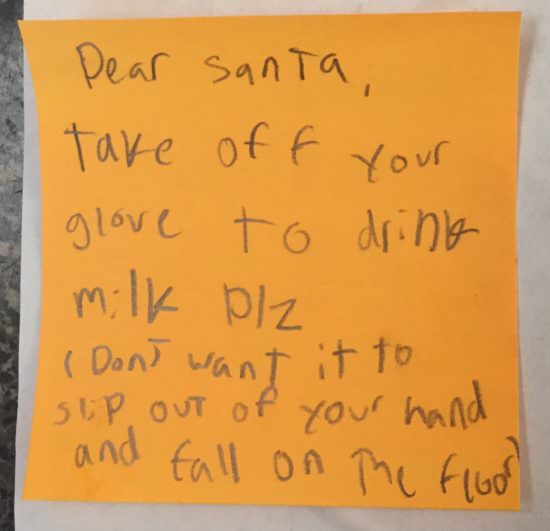 Dear santa,
take off your
glove to drink
milk plz
(Dont want it to
slip out of your hand
and fall on The floor)